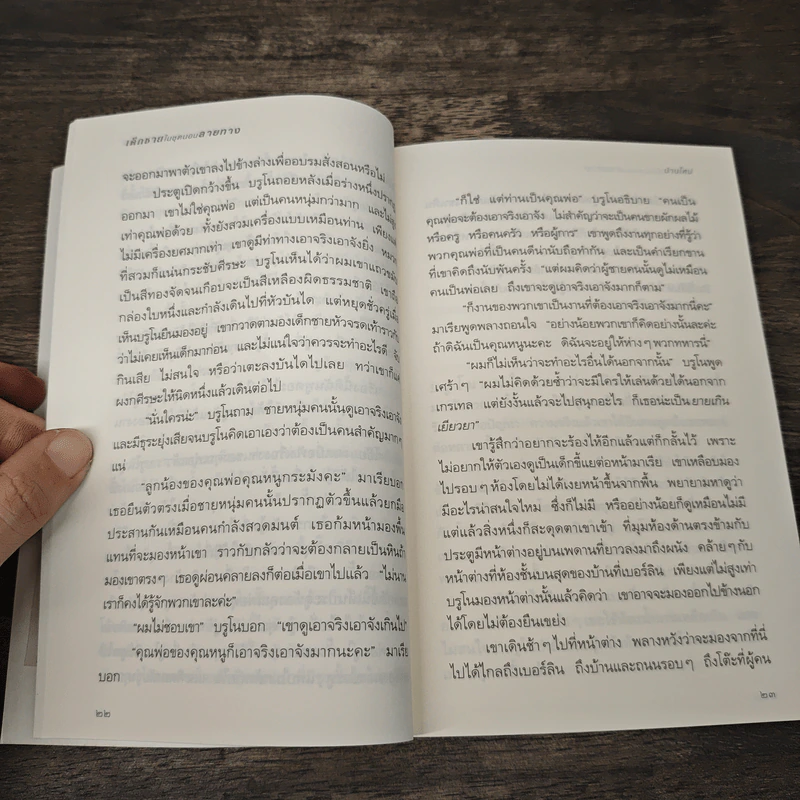 เด็กชายในชุดนอนลายทาง
จะออกมาพาตัวเขาลงไปข้างล่างเพื่ออบรมสั่งสอนหรือไม่
ประตูเปิดกว้างขึ้น บรูโนถอยหลังเมื่อร่างหนึ่งปรากฏ
ออกมา เขาไม่ใช่คุณพ่อ แต่เป็นคนหนุ่มกว่ามาก และไม่สูง
เท่าคุณพ่อด้วย ทั้งยังสวมเครื่องแบบเหมือนท่าน เพียงแต่
ไม่มีเครื่องยศมากเท่า เขาดูมีท่าทางเอาจริงเอาจังยิ่ง หมวก
ที่สวมก็แน่นกระชับศีรษะ บรูโนเห็นได้ว่าผมเขาแถวขมับ
เป็นสีทองจัดจนเกือบจะเป็นสีเหลืองผิดธรรมชาติ เขาถือ
กล่องใบหนึ่งและกำลังเดินไปที่หัวบันได แต่หยุดชั่วครู่เมื่อ
เห็นบรูโนยืนมองอยู่ เขากวาดตามองเด็กชายหัวจรดเท้าราวกับ
ว่าไม่เคยเห็นเด็กมาก่อน และไม่แน่ใจว่าควรจะทำอะไรดี จับ
กินเสีย ไม่สนใจ หรือว่าเตะลงบันไดไปเลย ทว่าเขาก็แค่
ผงกศีรษะให้นิดหนึ่งแล้วเดินต่อไป
“นั่นใครน่ะ” บรูโนถาม ชายหนุ่มคนนั้นดูเอาจริงเอาจัง
และมีธุระยุ่งเสียจนบรูโนคิดเอาเองว่าต้องเป็นคนสำคัญมากๆ
แน่
“ลูกน้องของคุณพ่อคุณหนูกระมังคะ” มาเรียบอก
เธอยืนตัวตรงเมื่อชายหนุ่มคนนั้นปรากฏตัวขึ้นแล้วยกมือ
ประสานกันเหมือนคนกำลังสวดมนต์ เธอก้มหน้ามองพื้น
แทนที่จะมองหน้าเขา ราวกับกลัวว่าจะต้องกลายเป็นหินถ้า
มองเขาตรงๆ เธอดูผ่อนคลายลงก็ต่อเมื่อเขาไปแล้ว “ไม่นาน
เราก็คงได้รู้จักพวกเขาละค่ะ”
“ผมไม่ชอบเขา” บรูโนบอก “เขาดูเอาจริงเอาจังเกินไป”
“คุณพ่อของคุณหนูก็เอาจริงเอาจังมากนะคะ” มาเรีย
บอก
๒๒
บ้านใหม่
“ก็ใช่ แต่ท่านเป็นคุณพ่อ” บรูโนอธิบาย “คนเป็น
คุณพ่อจะต้องเอาจริงเอาจัง ไม่สำคัญว่าจะเป็นคนขายผักผลไม้
หรือครู หรือคนครัว หรือผู้การ” เขาพูดถึงงานทุกอย่างที่รู้ว่า
พวกคุณพ่อที่เป็นคนดีน่านับถือทำกัน และเป็นคำเรียกขาน
ที่เขาคิดถึงนับพันครั้ง “แต่ผมคิดว่าผู้ชายคนนั้นดูไม่เหมือน
คนเป็นพ่อเลย ถึงเขาจะดูเอาจริงเอาจังมากก็ตาม”
“ก็งานของพวกเขาเป็นงานที่ต้องเอาจริงเอาจังมากนี่คะ”
มาเรียพูดพลางถอนใจ “อย่างน้อยพวกเขาก็คิดอย่างนั้นละค่ะ
ถ้าดิฉันเป็นคุณหนูนะคะ ดิฉันจะอยู่ให้ห่างๆ พวกทหารนี่”
“ผมก็ไม่เห็นว่าจะทำอะไรอื่นได้นอกจากนั้น” บรูโนพูด
เศร้าๆ “ผมไม่คิดด้วยซ้ำว่าจะมีใครให้เล่นด้วยได้นอกจาก
เกรเทล แต่ยังงั้นแล้วจะไปสนุกอะไร ก็เธอน่ะเป็นยายเกิน
เยียวยา”
เขารู้สึกว่าอยากจะร้องไห้อีกแล้วแต่ก็กลั้นไว้ เพราะ
ไม่อยากให้ตัวเองดูเป็นเด็กขี้แยต่อหน้ามาเรีย เขาเหลือบมอง
ไปรอบๆ ห้องโดยไม่ได้เงยหน้าขึ้นจากพื้น พยายามหาดูว่า
มีอะไรน่าสนใจไหม ซึ่งก็ไม่มี หรืออย่างน้อยก็ดูเหมือนไม่มี
แต่แล้วสิ่งหนึ่งก็สะดุดตาเขาเข้า ที่มุมห้องด้านตรงข้ามกับ
ประตูมีหน้าต่างอยู่บนเพดานที่ยาวลงมาถึงผนัง คล้ายๆ กับ
หน้าต่างที่ห้องชั้นบนสุดของบ้านที่เบอร์ลิน เพียงแต่ไม่สูงเท่า
บรูโนมองหน้าต่างนั้นแล้วคิดว่า เขาอาจจะมองออกไปข้างนอก
ได้โดยไม่ต้องยืนเขย่ง
เขาเดินช้าๆ ไปที่หน้าต่าง พลางหวังว่าจะมองจากที่นี่
ไปได้ไกลถึงเบอร์ลิน ถึงบ้านและถนนรอบๆ ถึงโต๊ะที่ผู้คน
๒๓